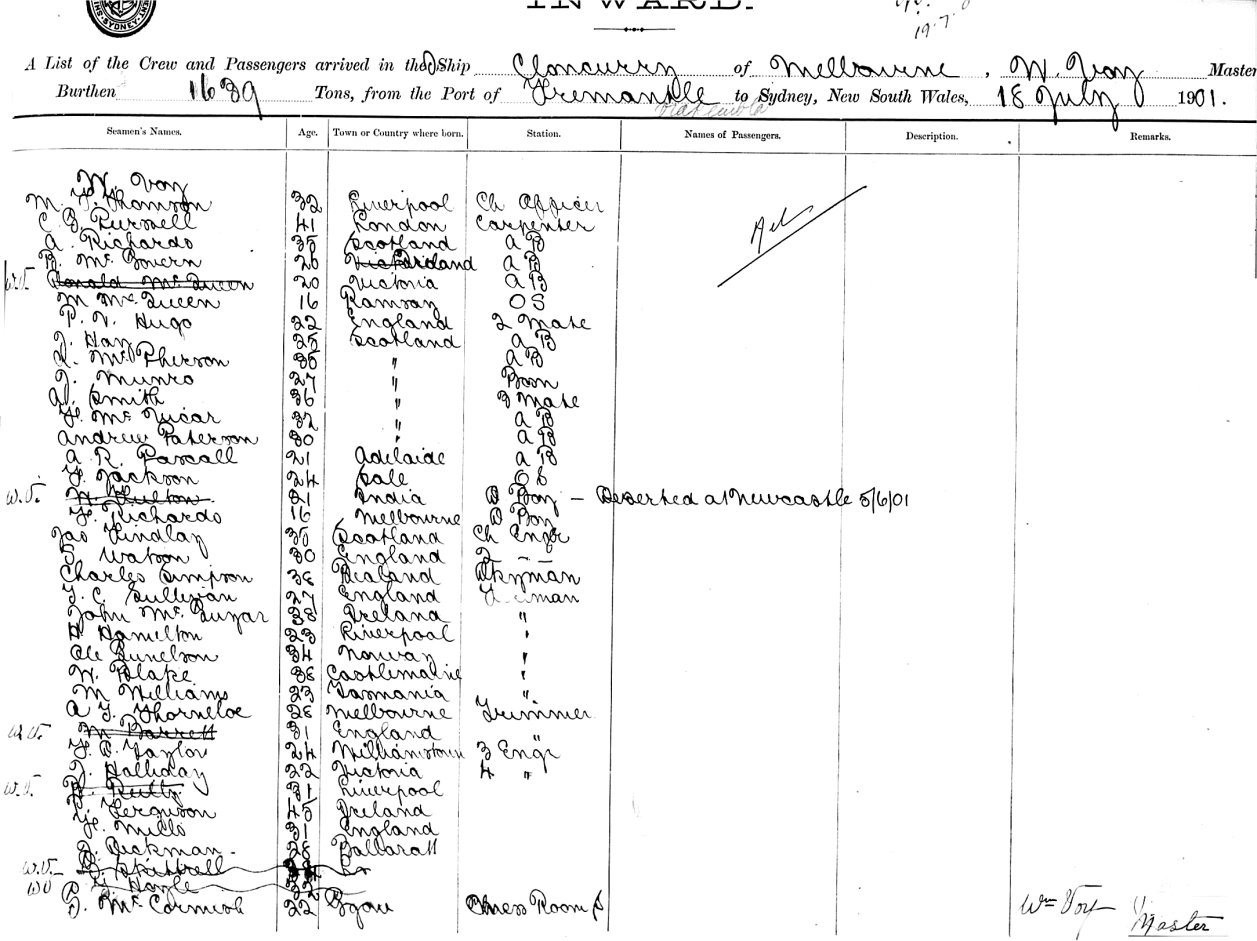 INWARD.
19.7.
A List of the Crew and Passengers arrived in the Ship Cloncurry of Melbourne, W. Voy Master
Burthen 1639 Tons, from the Port of Fremantle to Sydney, New South Wales, 18 July 1901.
Seamen's Names. Age. Town or Country where born. Station. Names of Passengers. Description. Remarks.
W. Voy
M. Y. Thomson 32 Liverpool Ch Officer
C E Purssell 41 London Carpenter
A. Richards 35 Scotland A B
B. Mc Govern 26 A B
W.V. Donald McQueen 20 Victoria A B
M McQueen 16 Ramsay O S
P. V. Hugo 22 England 2 Mate
J. Hay 25 Scotland A B
Mc Pherson 36 " A B
J. Munro 27 " Bosn
A. Smith 36 " 3 Mate
Mc Vicar 32 " A B
Andrew Paterson 30 " A B
A. R. Pascall 21 Adelaide A B
Jackson 24 Sale O S
W.V. H. Hulton 21 India D Boy – Deserted at Newcastle 5/6/01
Richards 16 Melbourne D Boy
Jas Findlay 35 Scotland Ch Engr
S. Watson 30 England 2 - -
Charles Simpson 38 Zealand Dkyman
J. C. Sullivan 27 England
John Mc 38 Ireland "
H. Hamilton 23 Liverpool "
Ole Gunelson 34 Norway "
W. Blake 38 Castlemaine "
M Williams 23 Tasmania "
A J. Thorneloe 28 Melbourne Trimmer
W.V. M Barrett 31 England "
Taylor 24 Williamstown 3 Engr
J. Halliday 22 Victoria 4 "
W.V. 31 Liverpool
Ferguson 45 Ireland
Mills 31 England
Dickman 28 Ballarat
W.V. Skittrell
Hoyle 32
D. McCormish 22 Mess Room S
Wm Voy Master